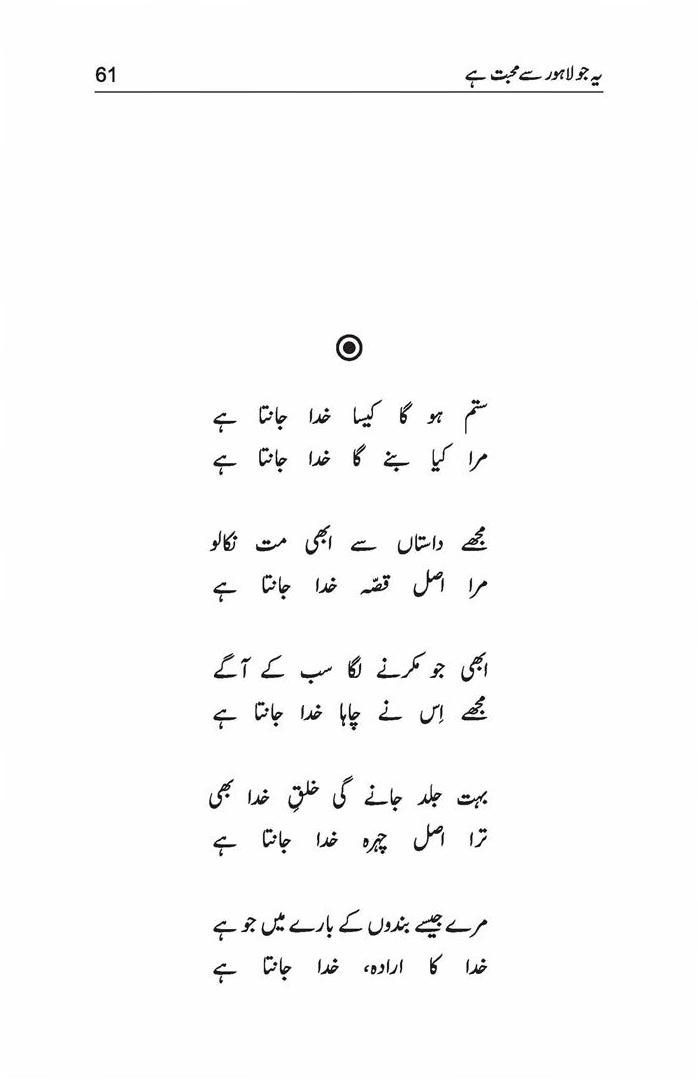 یہ جو لاہور سے محبت ہے
61
ستم ہو گا کیسا خدا جانتا ہے
مرا کیا بنے گا خدا جانتا ہے
مجھے داستاں سے ابھی مت نکالو
مرا اصل قصّہ خدا جانتا ہے
ابھی جو مکرنے لگا سب کے آگے
مجھے اِس نے چاہا خدا جانتا ہے
بہت جلد جانے گی خلقِ خدا بھی
ترا اصل چہرہ خدا جانتا ہے
مرے جیسے بندوں کے بارے میں جو ہے
خدا کا ارادہ، خدا جانتا ہے